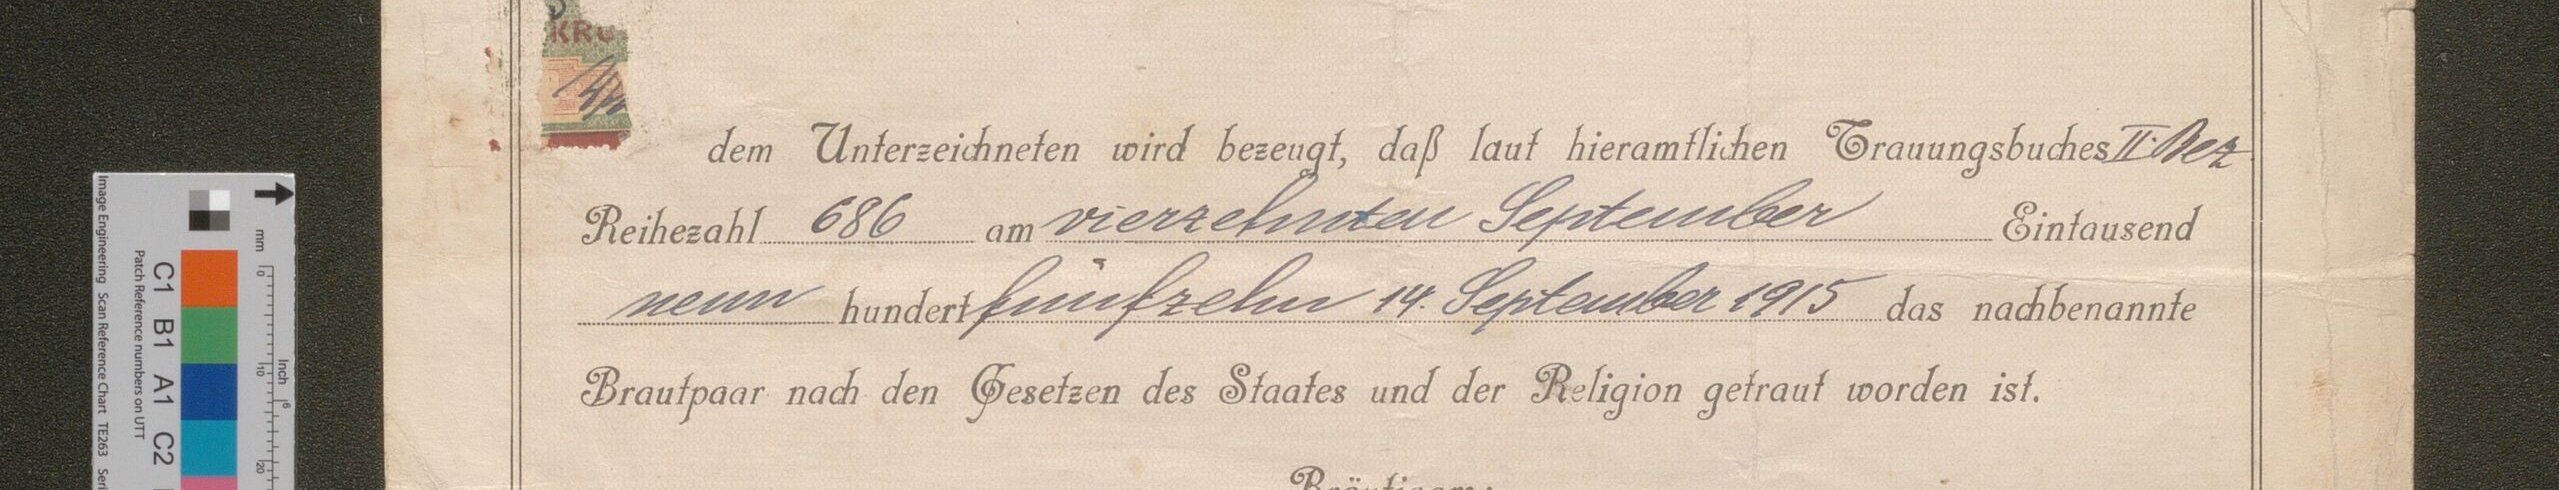 KRO
dem Unterzeichneten wird bezeugt, daß laut hieramtlichen Trauungsbuches II. Bez
Reihezahl 686 am vierzehnten September Eintausend
neun hundert fünfzehn 14. September 1915 das nachbenannte
Brautpaar nach den Gesetzen des Staates und der Religion getraut worden ist.
Bräutigam:
Image Engineering Scan Reference Chart TE263 Seri
Patch Reference numbers on UTT
C1 B1 A1 C2
mm 0 10 20
Inch